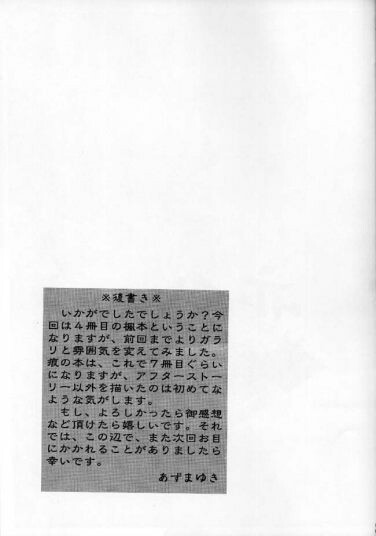 ※後書き※
いかがでしたでしょうか?今
回は4冊目の楓本ということに
なりますが、前回までよりガラ
リと雰囲気を変えてみました。
痕の本は、これで7冊目ぐらい
になりますが、アフタースト一
リー以外を描いたのは初めてな
ような気がします。
もし、よろしかったら御感想
など頂けたら嬉しいです。それ
では、この辺で、また次回お目
にかかれることがありましたら
幸いです。
あずまゆき